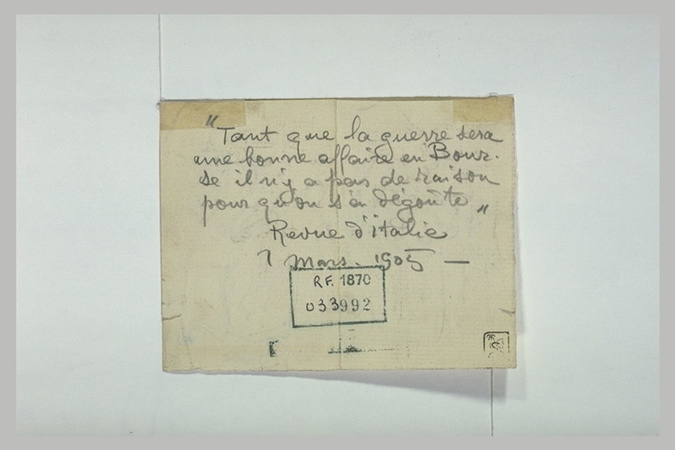 "Tant que la guerre sera
une bonne affaire en Bour-
se il n'y a pas de raison
pour qu'on s'en dégoûte"
Revue d'Italie
7 Mars. 1905 —
RF. 1870
033992